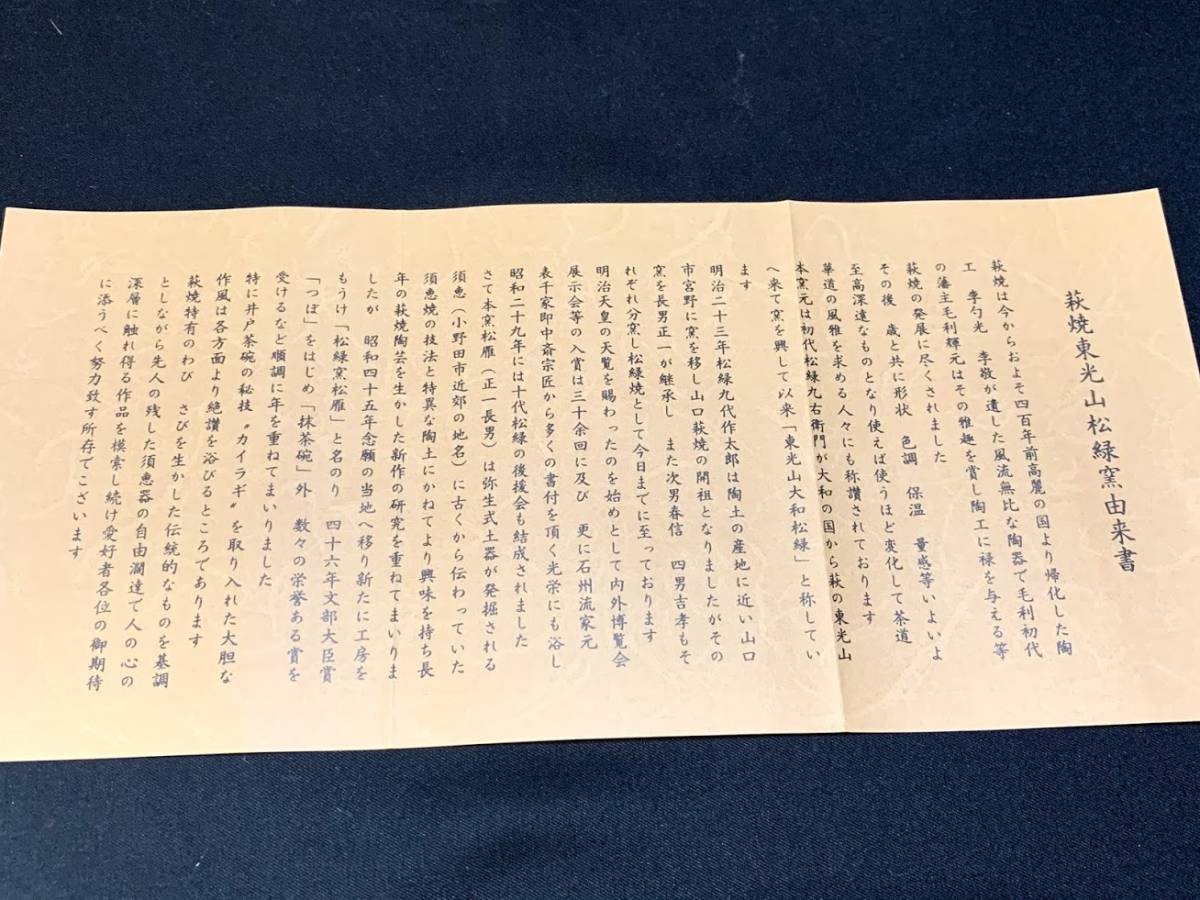 萩焼東光山松緑窯由来書
萩焼は今からおよそ四百年前高麗の国より帰化した陶
工　李勺光　李敬が遺した風流無比な陶器で毛利初代
の藩主毛利輝元はその雅趣を賞し陶工に禄を与える等
萩焼の発展に尽くされました
その後　歳と共に形状　色調　保温　量感等いよいよ
至高深遠なものとなり使えば使うほど変化して茶道
華道の風雅を求める人々にも称讃されております
本窯元は初代松緑九右衛門が大和の国から萩の東光山
へ来て窯を興して以来「東光山大和松緑」と称してい
ます
明治二十三年松緑九代作太郎は陶土の産地に近い山口
市宮野に窯を移し山口萩焼の開祖となりましたがその
窯を長男正一が継承し　また次男春信　四男吉孝もそ
れぞれ分窯し松緑焼として今日までに至っております
明治天皇の天覧を賜わったのを始めとして内外博覧会
展示会等の入賞は三十余回に及び　更に石州流家元
表千家即中斎宗匠から多くの書付を頂く光栄にも浴し
昭和二十九年には十代松緑の後援会も結成されました
さて本窯松雁（正一長男）は弥生式土器が発掘される
須恵（小野田市近郊の地名）に古くから伝わっていた
須恵焼の技法と特異な陶土にかねてより興味を持ち長
年の萩焼陶芸を生かした新作の研究を重ねてまいりま
したが　昭和四十五年念願の当地へ移り新たに工房を
もうけ「松緑窯松雁」と名のり　四十六年文部大臣賞
「つぼ」をはじめ「抹茶碗」外　数々の栄誉ある賞を
受けるなど順調に年を重ねてまいりました
特に井戸茶碗の秘技〝カイラギ〟を取り入れた大胆な
作風は各方面より絶讃を浴びるところであります
萩焼特有のわび　さびを生かした伝統的なものを基調
としながら先人の残した須恵器の自由濶達で人の心の
深層に触れ得る作品を模索し続け愛好者各位の御期待
に添うべく努力致す所存でございます